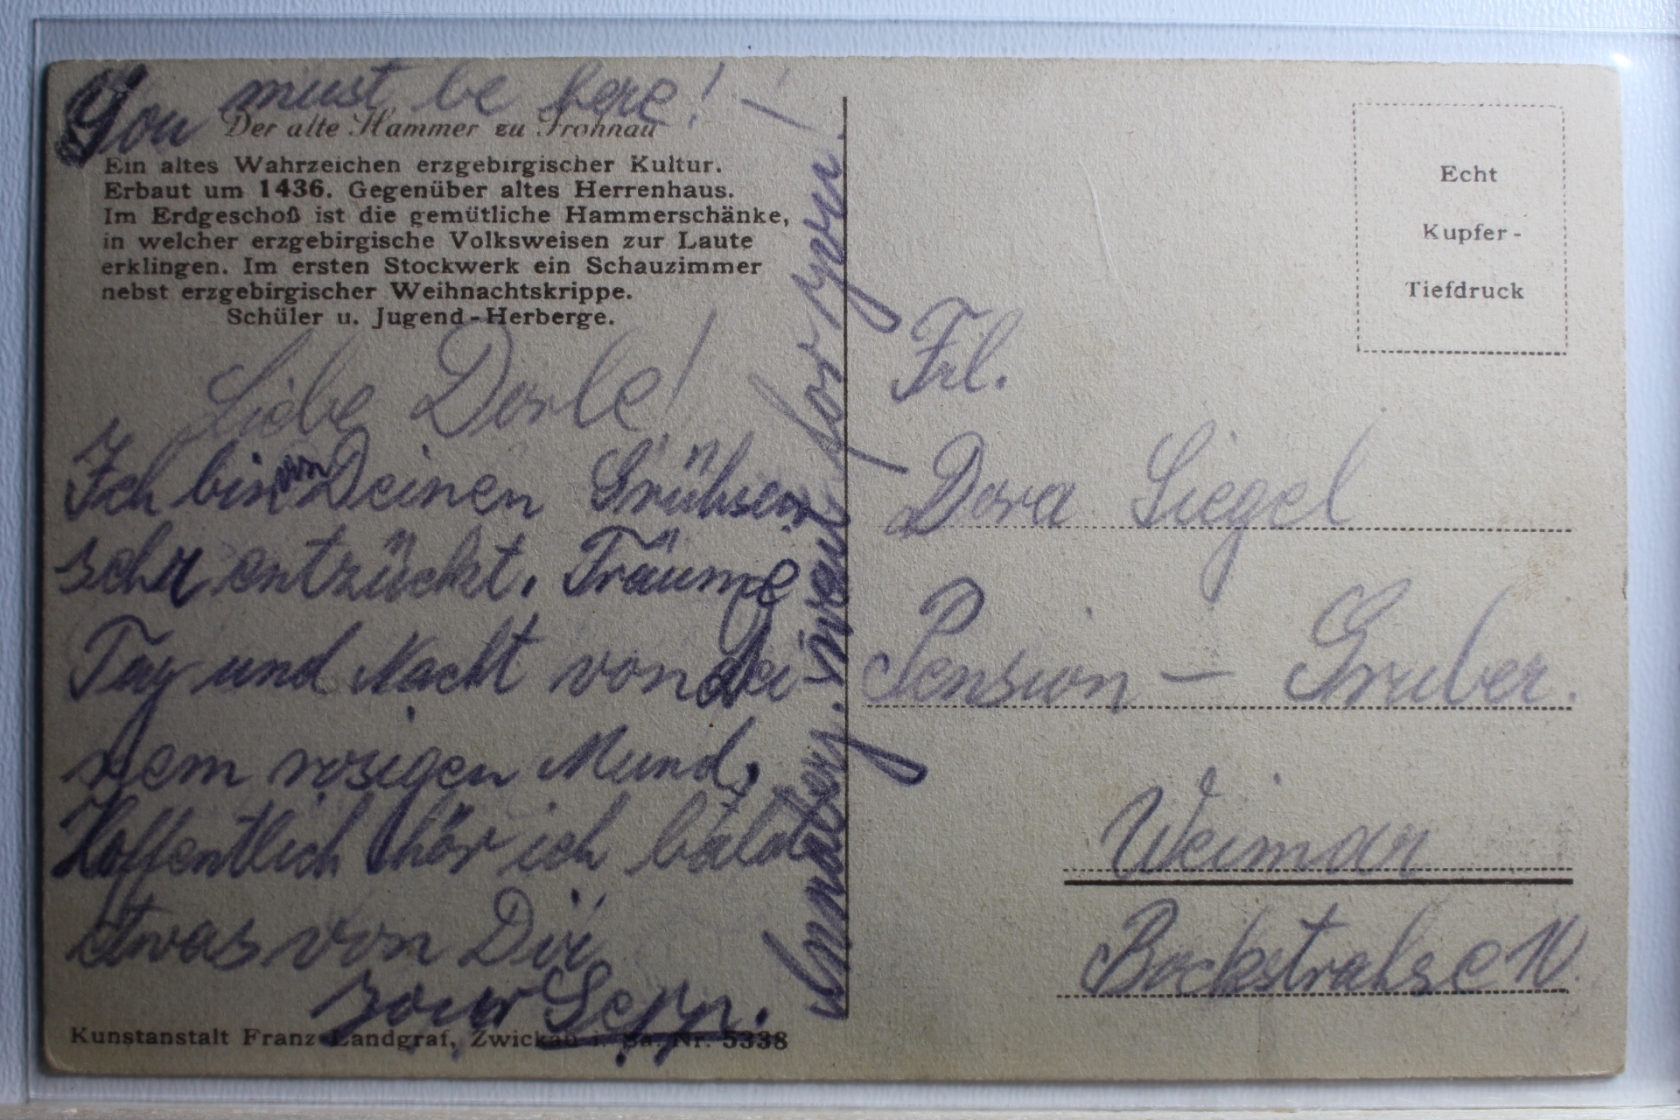 You must be here!
Der alte Hammer zu Frohnau
Ein altes Wahrzeichen erzgebirgischer Kultur.
Erbaut um 1436. Gegenüber altes Herrenhaus.
Im Erdgeschoß ist die gemütliche Hammerschänke,
in welcher erzgebirgische Volksweisen zur Laute
erklingen. Im ersten Stockwerk ein Schauzimmer
nebst erzgebirgischer Weihnachtskrippe.
Schüler u. Jugend-Herberge.
Liebe Dorle!
Ich bin von Deinen Grühsen
sehr entzückt. Träume
Tag und Nacht von dei-
nem rosigen Mund.
Hoffentlich hör ich bald
etwas von Dir
your Sepp.
Kunstanstalt Franz Landgraf, Zwickau i. Sa. Nr. 5338
my for you!
Echt
Kupfer-
Tiefdruck
Frl.
Dora Siegel
Pension - Gruber.
Weimar
Bockstrahse